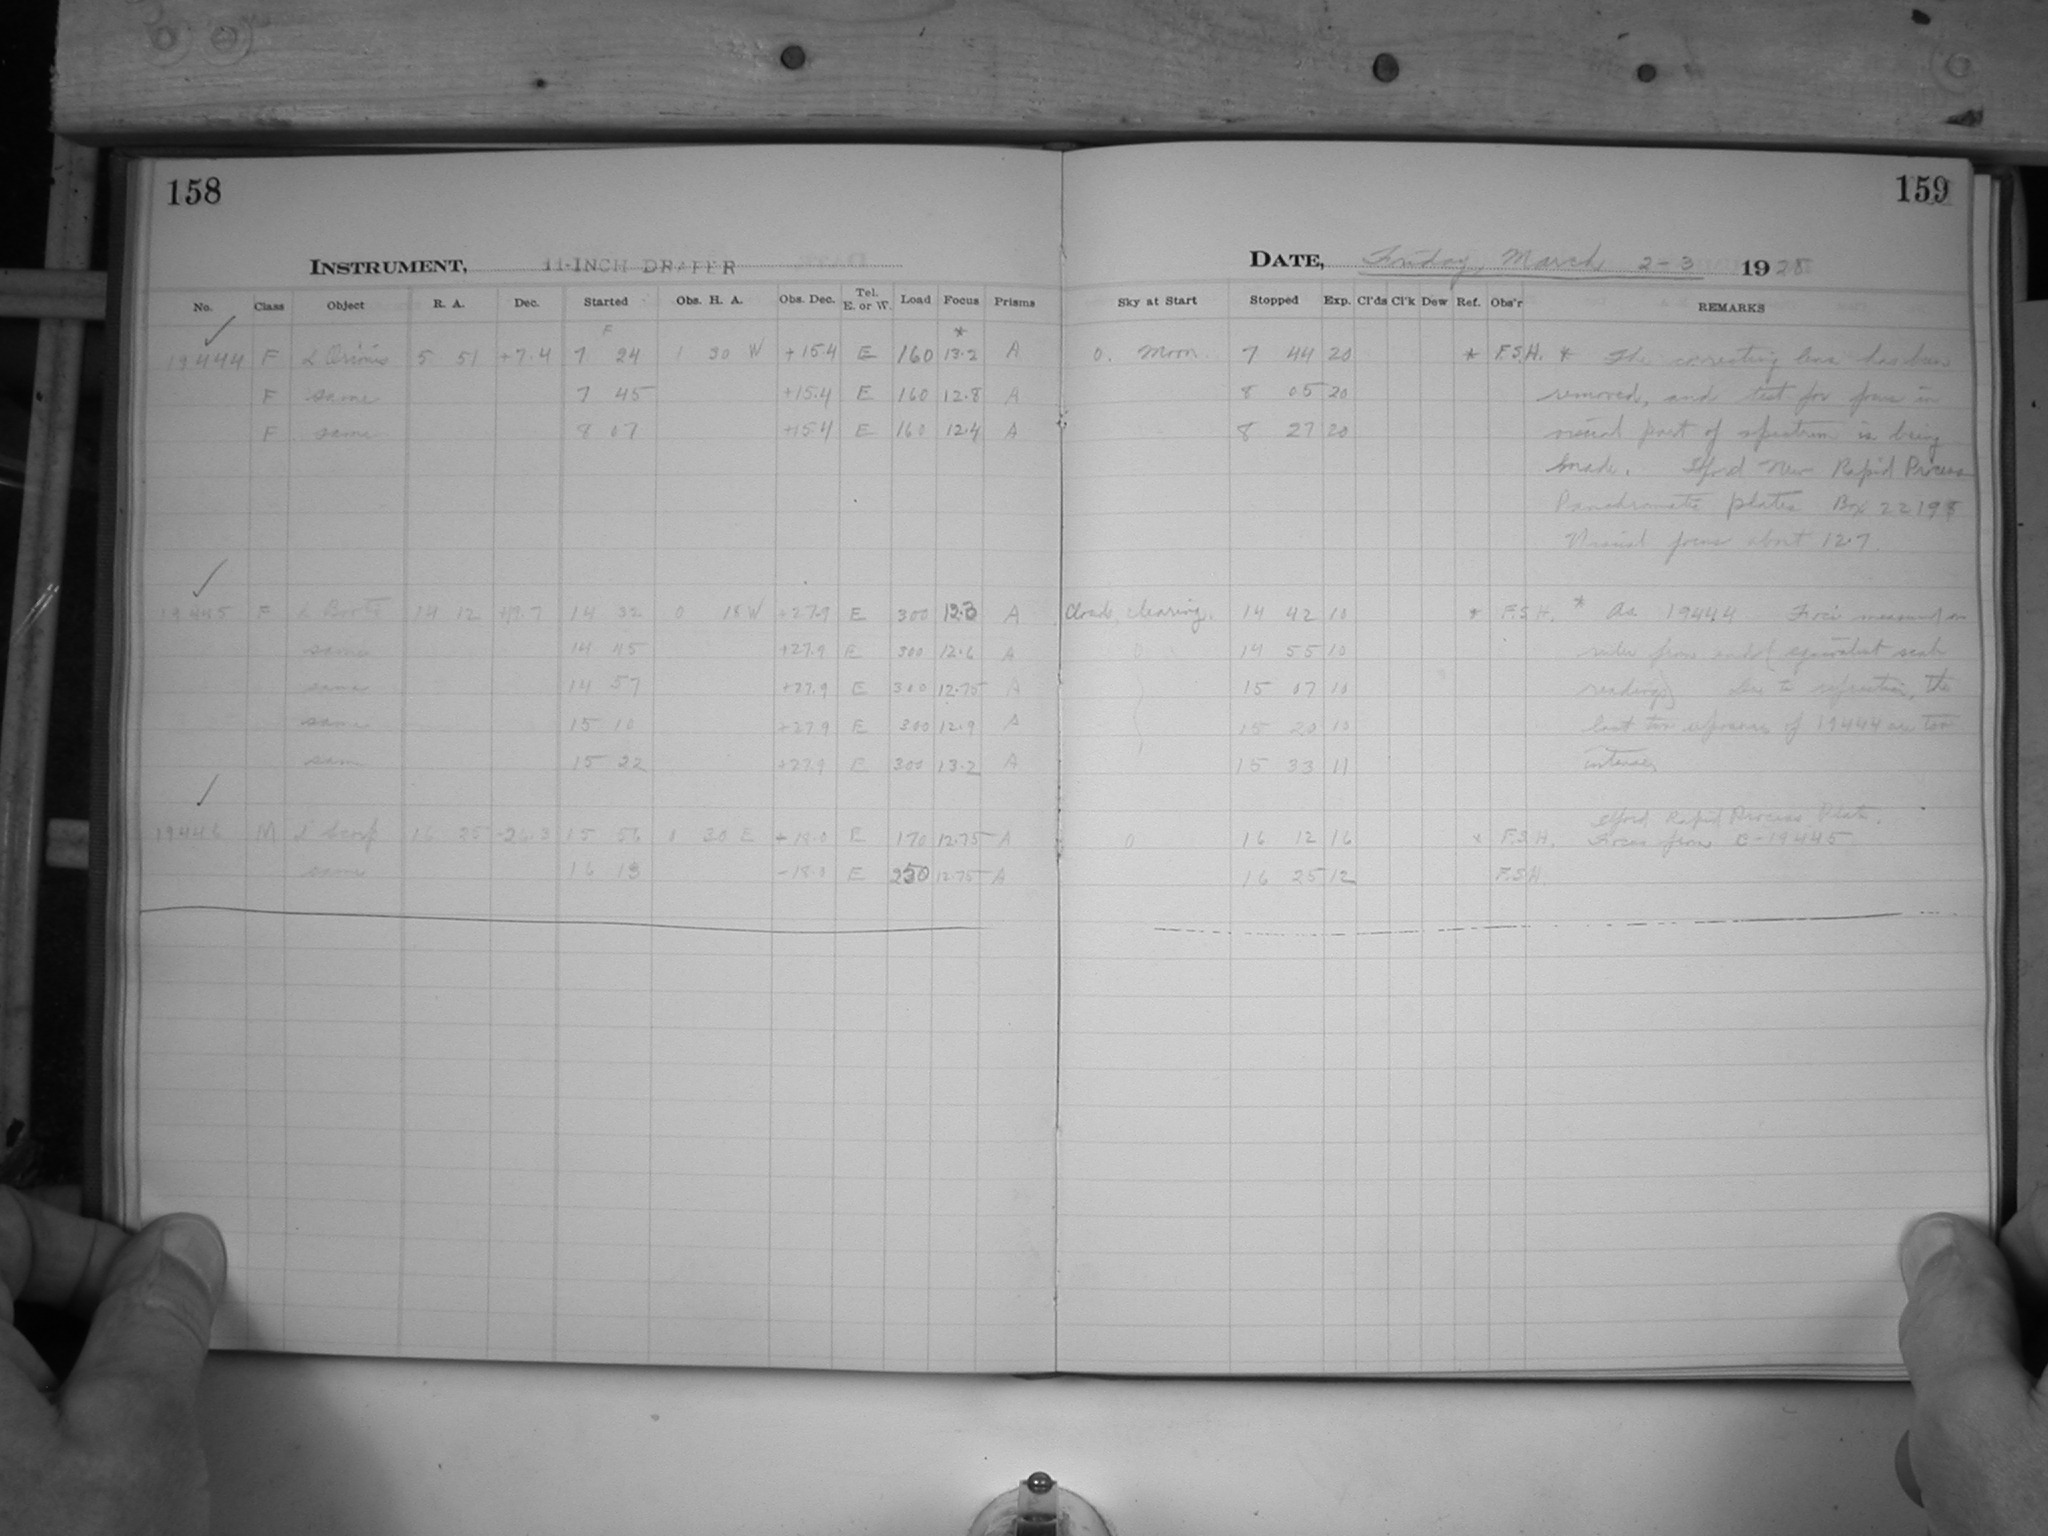 158
INSTRUMENT, 11-INCH DRAPER
No. Class Object R. A. Dec. Started Obs. H. A. Obs. Dec. Tel. E. or W. Load Focus Prisms
F *
19444 F α Orionis 5 51 +7.4 7 24 1 30 W +15.4 E 160 13.2 A
F same 7 45 +15.4 E 160 12.8 A
F same 8 07 +15.4 E 160 12.4 A
19445 F α Boötis 14 12 +19.7 14 32 0 18 W +27.9 E 300 12.3 A
same 14 45 +27.9 E 300 12.6 A
same 14 57 +27.9 E 300 12.75 A
same 15 10 +27.9 E 300 12.9 A
same 15 22 +27.9 E 300 13.2 A
19446 M α Scorp 16 25 -26.3 15 56 0 30 E -18.0 E 170 12.75 A
same 16 13 -18.0 E 250 12.75 A
159
DATE, Friday, March 2-3 1928
Sky at Start Stopped Exp. Cl'ds Cl'k Dew Ref. Obs'r REMARKS
0. Moon. 7 44 20 * F.S.H. * The correcting lens has been
8 05 20 removed, and test for focus in
8 27 20 visual part of spectrum is being
made. Ilford New Rapid Process
Panchromatic plates Box 22198
Visual focus about 12.7.
Clouds, clearing. 14 42 10 * F.S.H. * As 19444 Foci measured on
0 14 55 10 ruler from end (equivalent scale
15 07 10 readings) Due to refraction, the
15 20 10 last two exposures of 19444 are too
15 33 11 intense
Ilford Rapid Process Plate.
0 16 12 16 * F.S.H. Focus from C-19445
16 25 12 F.S.H.